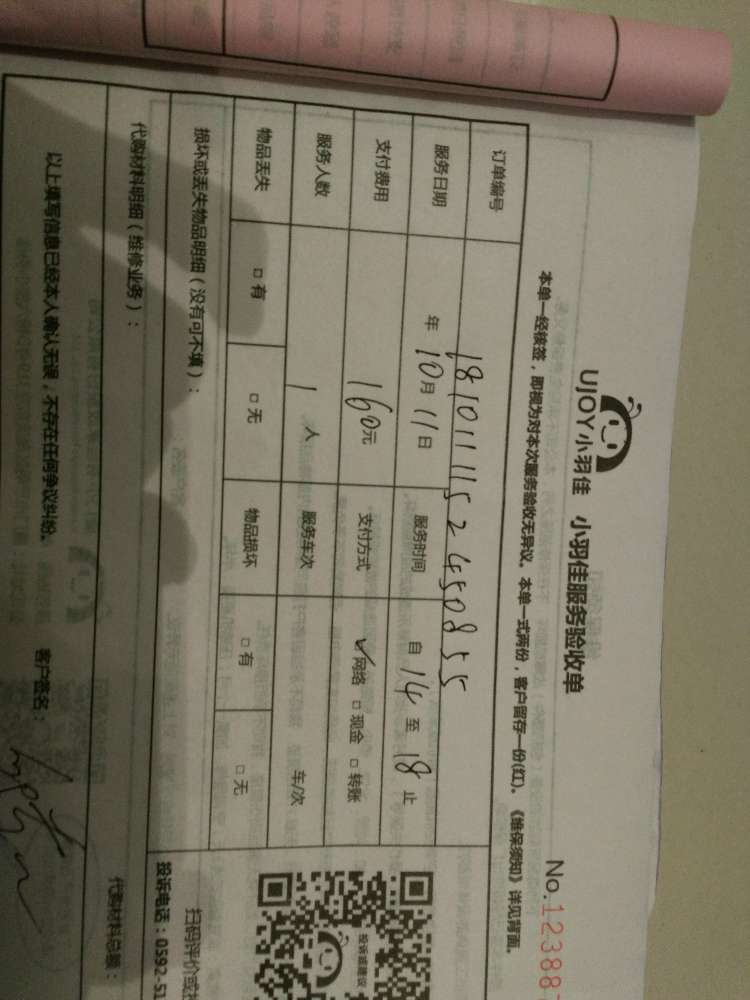 UJOY小羽佳 小羽佳服务验收单
No.12388
本单一经核签，即视为对本次服务验收无异议。本单一式两份，客户留存一份(红)。《维保须知》详见背面。
订单编号 1810111152450855
服务日期 年 10月 11日 服务时间 自 14 至 18 止
支付费用 160元 支付方式 ☑网络 □现金 □转账
服务人数 1 人 服务车次 车/次
物品丢失 □有 □无 物品损坏 □有 □无
损坏或丢失物品明细（没有可不填）：
投诉或建议
扫码评价或
投诉电话：0592-51
代购材料明细（维修业务）：
代购材料总额：
以上填写信息已经本人确认无误，不存在任何争议纠纷。
客户签名：